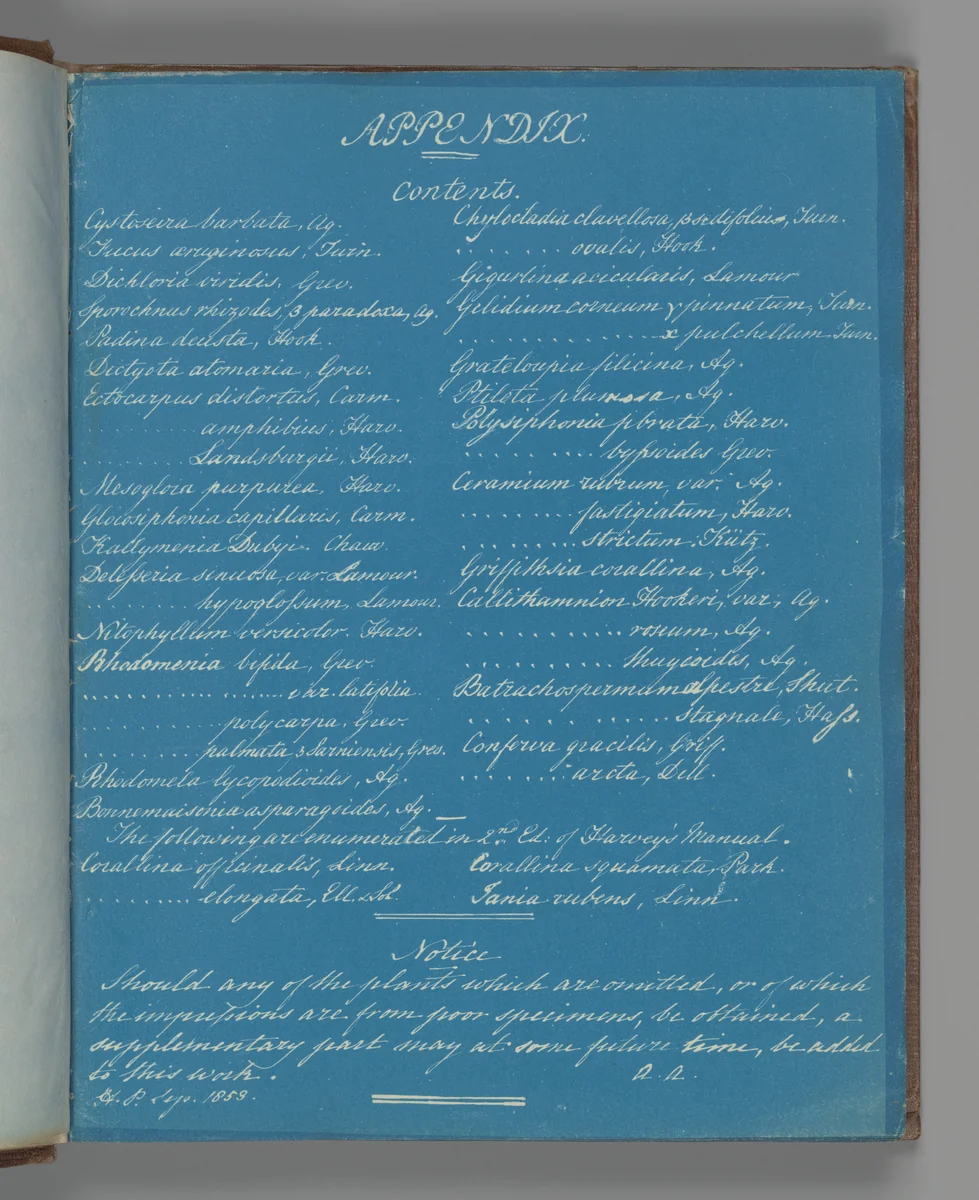 APPENDIX.
Contents.
Cystoseira barbata, Ag.
Fucus æruginosus, Turn.
Dichloria viridis, Grev.
Sporochnus rhizodes, β paradoxa, Ag.
Padina deusta, Hook.
Dictyota atomaria, Grev.
Ectocarpus distortus, Carm.
.......... amphibius, Harv.
.......... Landsburgii, Harv.
Mesogloia purpurea, Harv.
Gloiosiphonia capillaris, Carm.
Kallymenia Dubyi. Chauv.
Delesseria sinuosa, var. Lamour.
.......... hypoglossum, Lamour.
Nitophyllum versicolor. Harv.
Rhodomenia bifida, Grev.
.................... var. latifolia
.............. polycarpa, Grev.
............ palmata β Sarniensis, Grev.
Rhodomela lycopodioides, Ag.
Bonnemaisonia asparagoides, Ag.
Chylocladia clavellosa, β sedifolius, Turn.
. . . . . . . ovalis, Hook.
Gigartina acicularis, Lamour
Gelidium corneum γ pinnatum, Turn.
.................. x pulchellum Turn.
Grateloupia filicina, Ag.
Ptilota plumosa, Ag.
Polysiphonia fibrata, Harv.
. . . . . . . . . byssoides Grev.
Ceramium rubrum, var. Ag.
.......... fastigiatum, Harv.
.......... strictum, Kütz.
Griffithsia corallina, Ag.
Callithamnion Hookeri, var, Ag.
.............. roseum, Ag.
.............. thuyoidis, Ag.
Batrachospermum alpestre, Shut.
.................. stagnale, Hass.
Conferva gracilis, Griff.
........ arcta, Dill.
The following are enumerated in 2nd Ed: of Harvey's Manual.
Corallina officinalis, Linn.
.......... elongata, Ell. & Sol.
Corallina squamata, Park.
Jania rubens, Linn.
Notice
Should any of the plants which are omitted, or of which
the impressions are from poor specimens, be obtained, a
supplementary part may at some future time, be added
to this work.
A. A.
H. P. Sep. 1853.